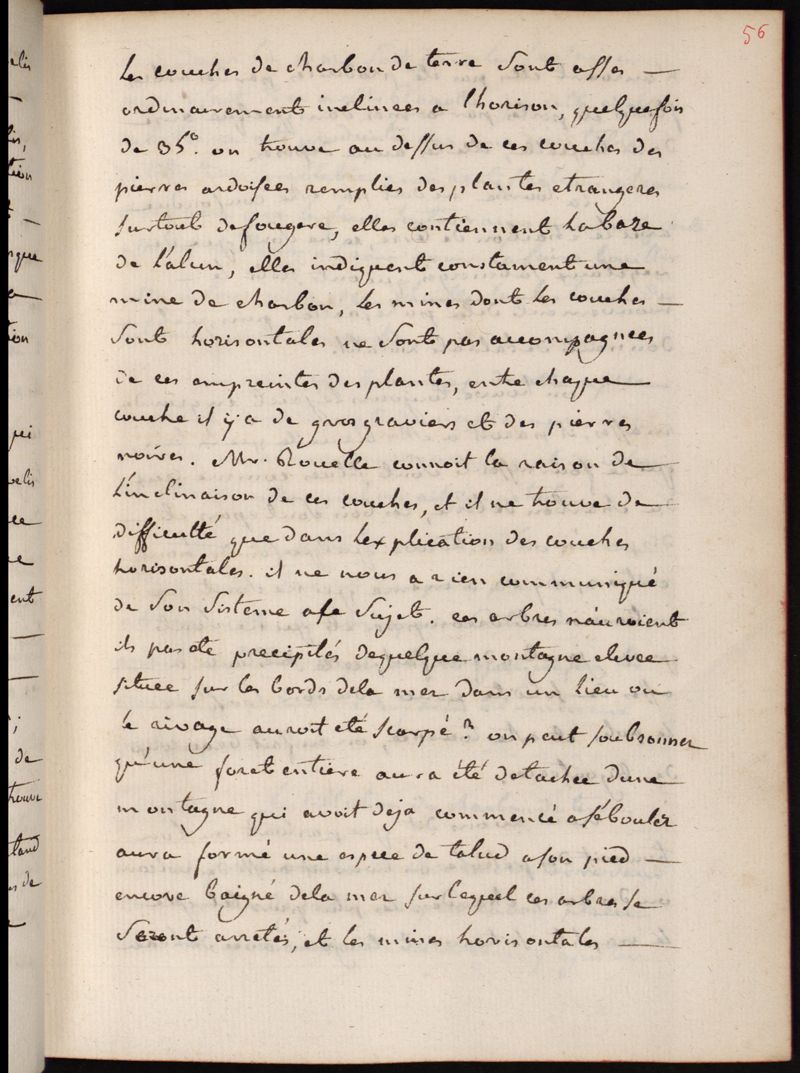 56
les couches de charbon de terre sont asses —
ordinairement inclinees a l'horison, quelquefois
de 35°. on trouve au dessus de ces couches des
pierres ardoisees remplies des plantes etrangeres
surtout de fougere, elles contiennent la baze
de l'alun, elles indiquent constament une
mine de charbon, les mines dont les couches —
sont horisontales ne sont pas accompagnees
de ces empreintes des plantes, entre chaque
couche il y a de gros graviers et des pierres
noires. Mr. Rouelle connoit la raison de
l'inclinaison de ces couches, et il ne trouve de
difficulté que dans lexplication des couches
horisontales. il ne nous a rien communiqué
de son sisteme a ce sujet. ces arbres n'auroient
ils pas ete precipités de quelque montagne elevee
située sur les bords de la mer dans un lieu ou
le rivage auroit eté scarpé? on peut soubsonner
qu'une foret entiere aura été detachee dune
montagne qui avoit deja commencé a s'ébouler
aura formé une espece de talud a son pied —
encore baigné de la mer sur lequel ces arbres se
seront arretés, et les mines horisontales —